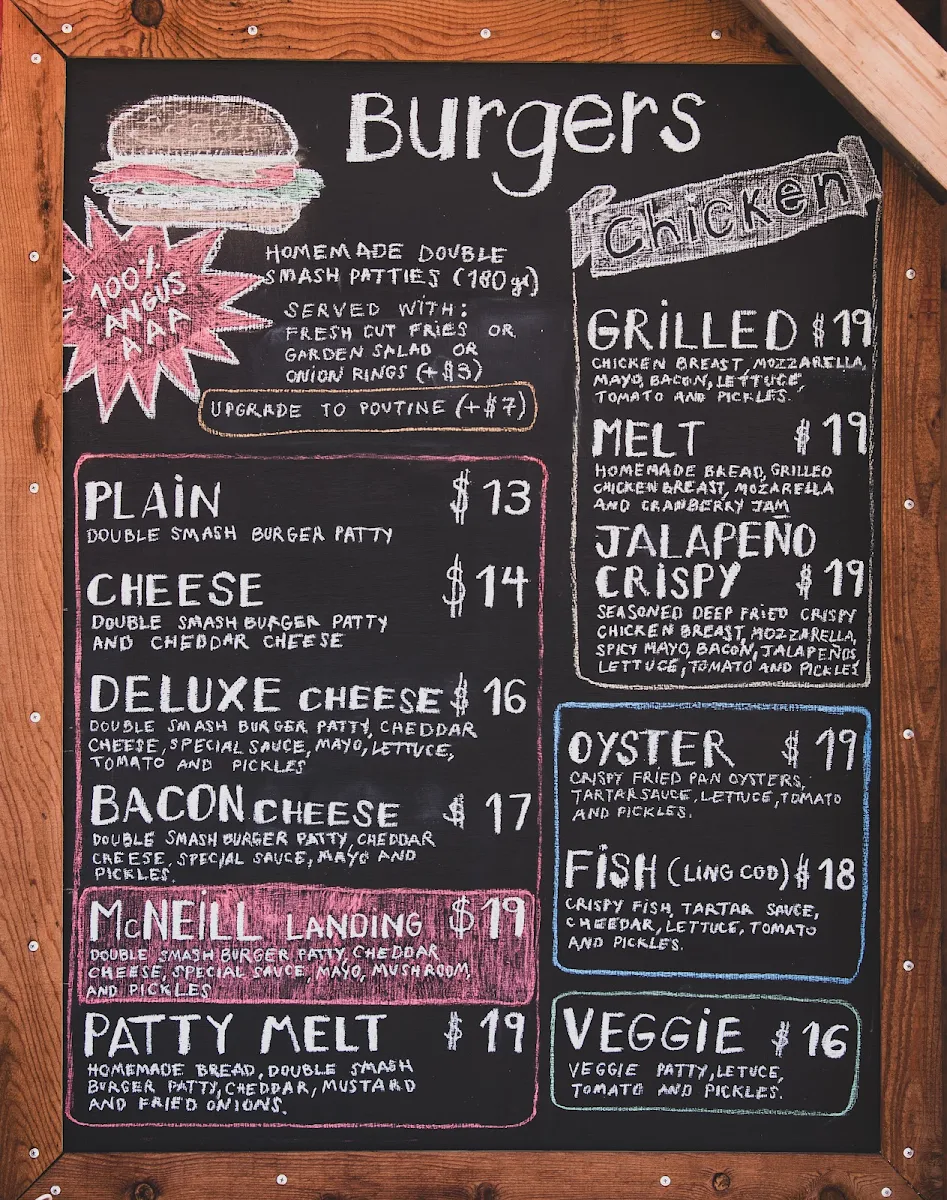 Burgers
100%
ANGUS
AAA
HOMEMADE DOUBLE
SMASH PATTIES (180 gr)
SERVED WITH:
FRESH CUT FRIES OR
GARDEN SALAD OR
ONION RINGS (+$3)
UPGRADE TO POUTINE (+$7)
PLAIN $ 13
DOUBLE SMASH BURGER PATTY
CHEESE $ 14
DOUBLE SMASH BURGER PATTY
AND CHEDDAR CHEESE
DELUXE CHEESE $ 16
DOUBLE SMASH BURGER PATTY, CHEDDAR
CHEESE, SPECIAL SAUCE, MAYO, LETTUCE,
TOMATO AND PICKLES
BACON CHEESE $ 17
DOUBLE SMASH BURGER PATTY, CHEDDAR
CHEESE, SPECIAL SAUCE, MAYO AND
PICKLES.
McNEILL LANDING $ 19
DOUBLE SMASH BURGER PATTY, CHEDDAR
CHEESE, SPECIAL SAUCE, MAYO, MUSHROOM,
AND PICKLES
PATTY MELT $ 19
HOMEMADE BREAD, DOUBLE SMASH
BURGER PATTY, CHEDDAR, MUSTARD
AND FRIED ONIONS.
Chicken
GRILLED $ 19
CHICKEN BREAST, MOZZARELLA,
MAYO, BACON, LETTUCE,
TOMATO AND PICKLES.
MELT $ 19
HOMEMADE BREAD, GRILLED
CHICKEN BREAST, MOZARELLA
AND CRANBERRY JAM
JALAPEÑO
CRISPY $ 19
SEASONED DEEP FRIED CRISPY
CHICKEN BREAST, MOZZARELLA,
SPICY MAYO, BACON, JALAPEÑOS
LETTUCE, TOMATO AND PICKLES
OYSTER $ 19
CRISPY FRIED PAN OYSTERS,
TARTAR SAUCE, LETTUCE, TOMATO
AND PICKLES.
FISH (LING COD) $ 18
CRISPY FISH, TARTAR SAUCE,
CHEEDAR, LETTUCE, TOMATO
AND PICKLES.
VEGGIE $ 16
VEGGIE PATTY, LETUCE,
TOMATO AND PICKLES.